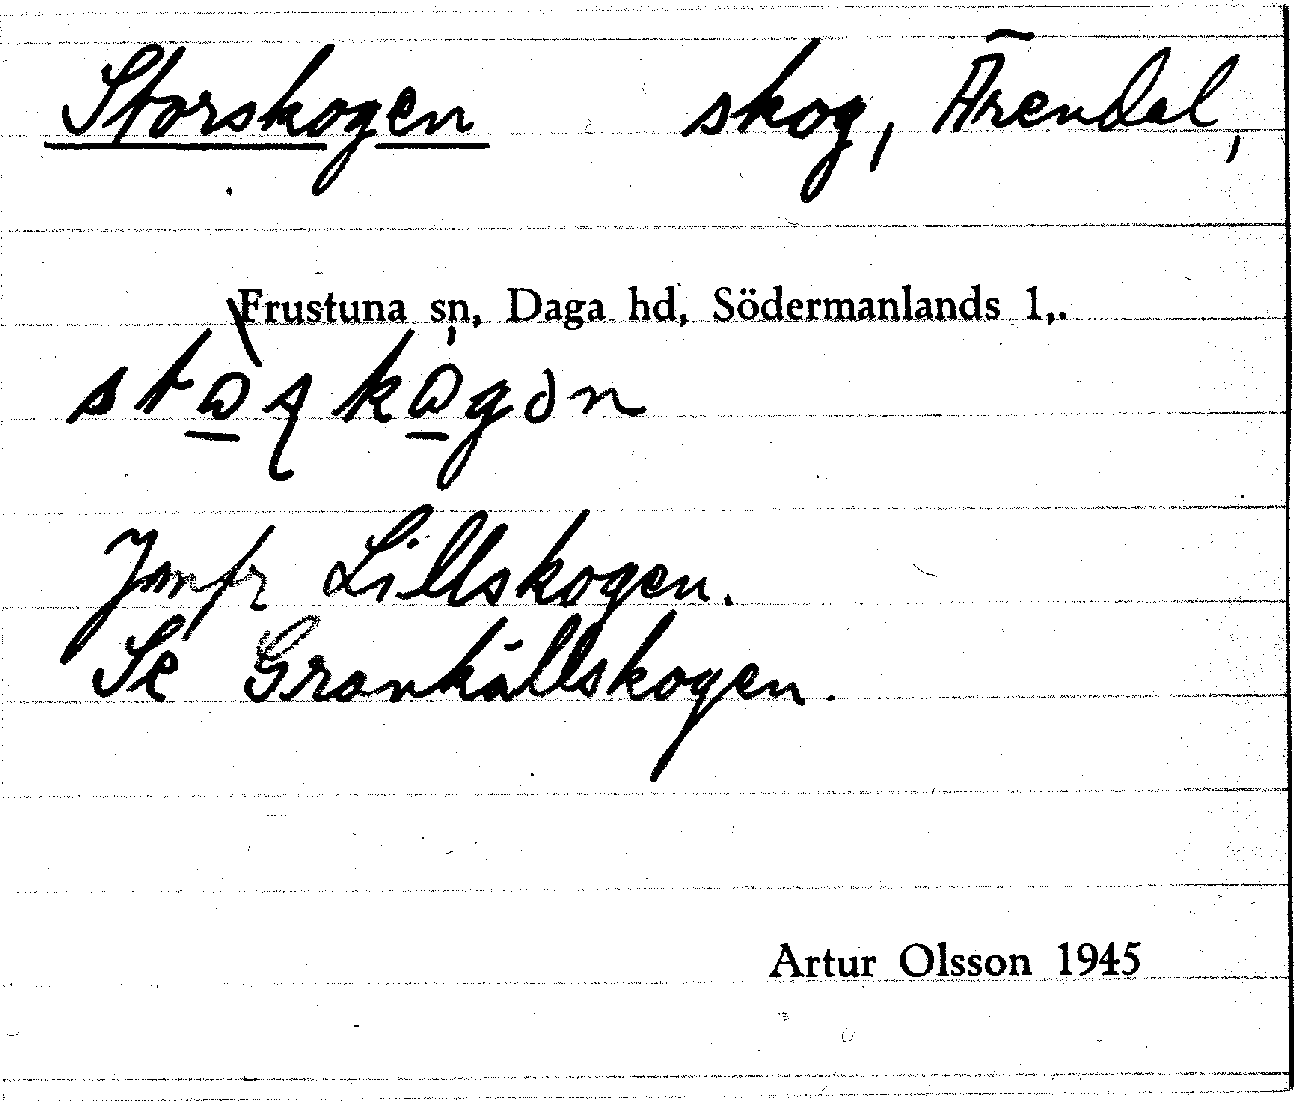 Storskogen skog, Ärendal,
Frustuna sn, Daga hd, Södermanlands l,.
Jmfr Lillskogen.
Se Grankällskogen.
Artur Olsson 1945